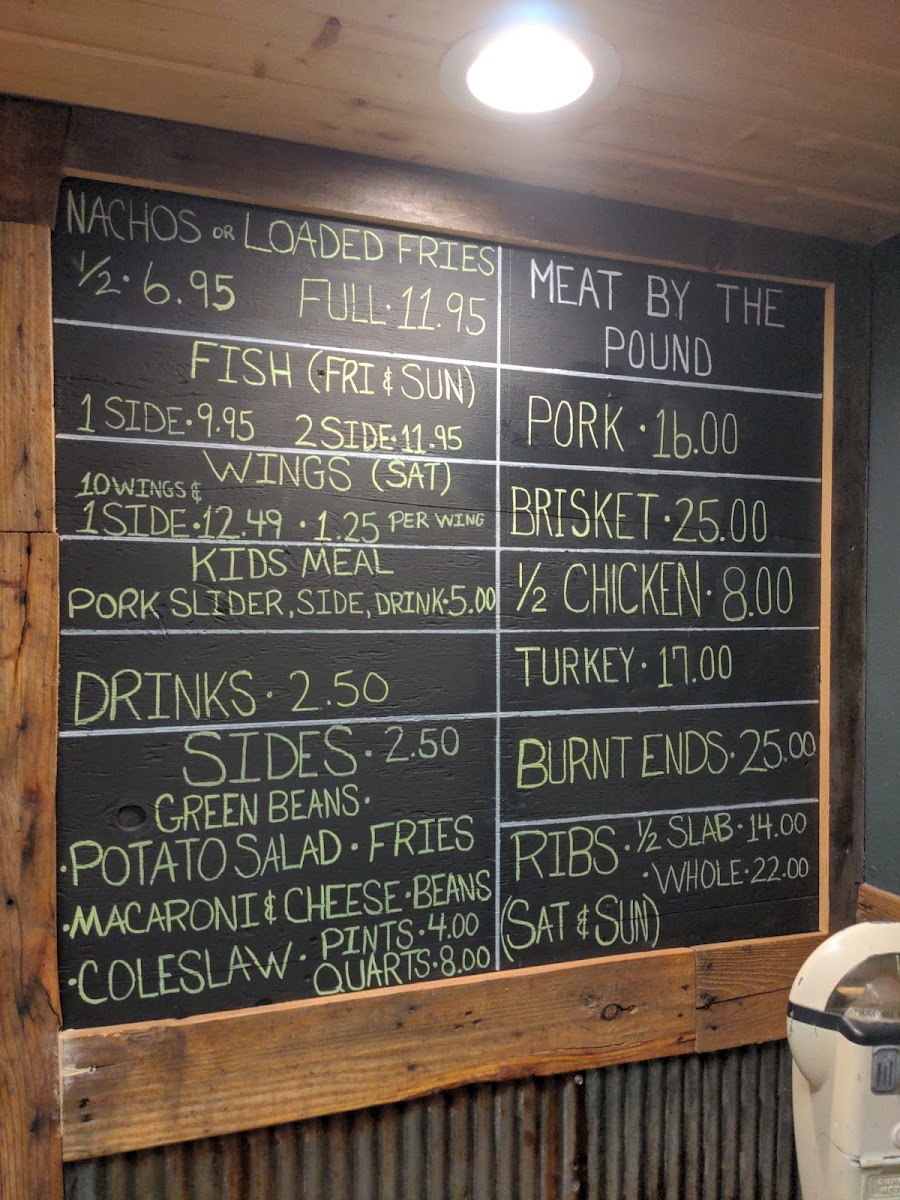 NACHOS OR LOADED FRIES
1/2 · 6.95 FULL · 11.95
FISH (FRI & SUN)
1 SIDE · 9.95 2 SIDE · 11.95
WINGS (SAT)
10 WINGS &
1 SIDE · 12.49 · 1.25 PER WING
KIDS MEAL
PORK SLIDER, SIDE, DRINK · 5.00
DRINKS · 2.50
SIDES · 2.50
GREEN BEANS ·
· POTATO SALAD · FRIES
· MACARONI & CHEESE · BEANS
· COLESLAW · PINTS · 4.00
QUARTS · 8.00
MEAT BY THE
POUND
PORK · 16.00
BRISKET · 25.00
1/2 CHICKEN · 8.00
TURKEY · 17.00
BURNT ENDS · 25.00
RIBS · 1/2 SLAB · 14.00
· WHOLE · 22.00
(SAT & SUN)